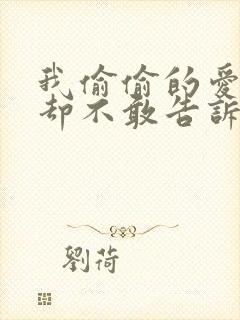 我偷偷的愛
却不敢告訴
劉荷